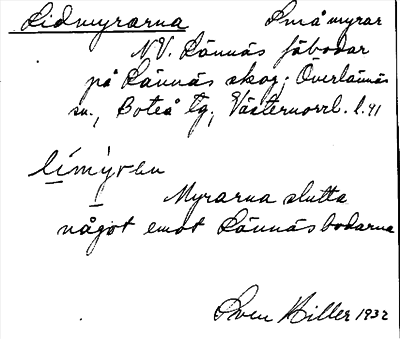 Lidmyrarna Små myrar
N.V. Lännäs fäbodar
på Lännäs skog; Överlännäs
sn., Boteå tg, Västernorrl. l. 41
límýrɐn
Myrarna slutta
något emot Lännäsbodarna
Sven Hiller 1932